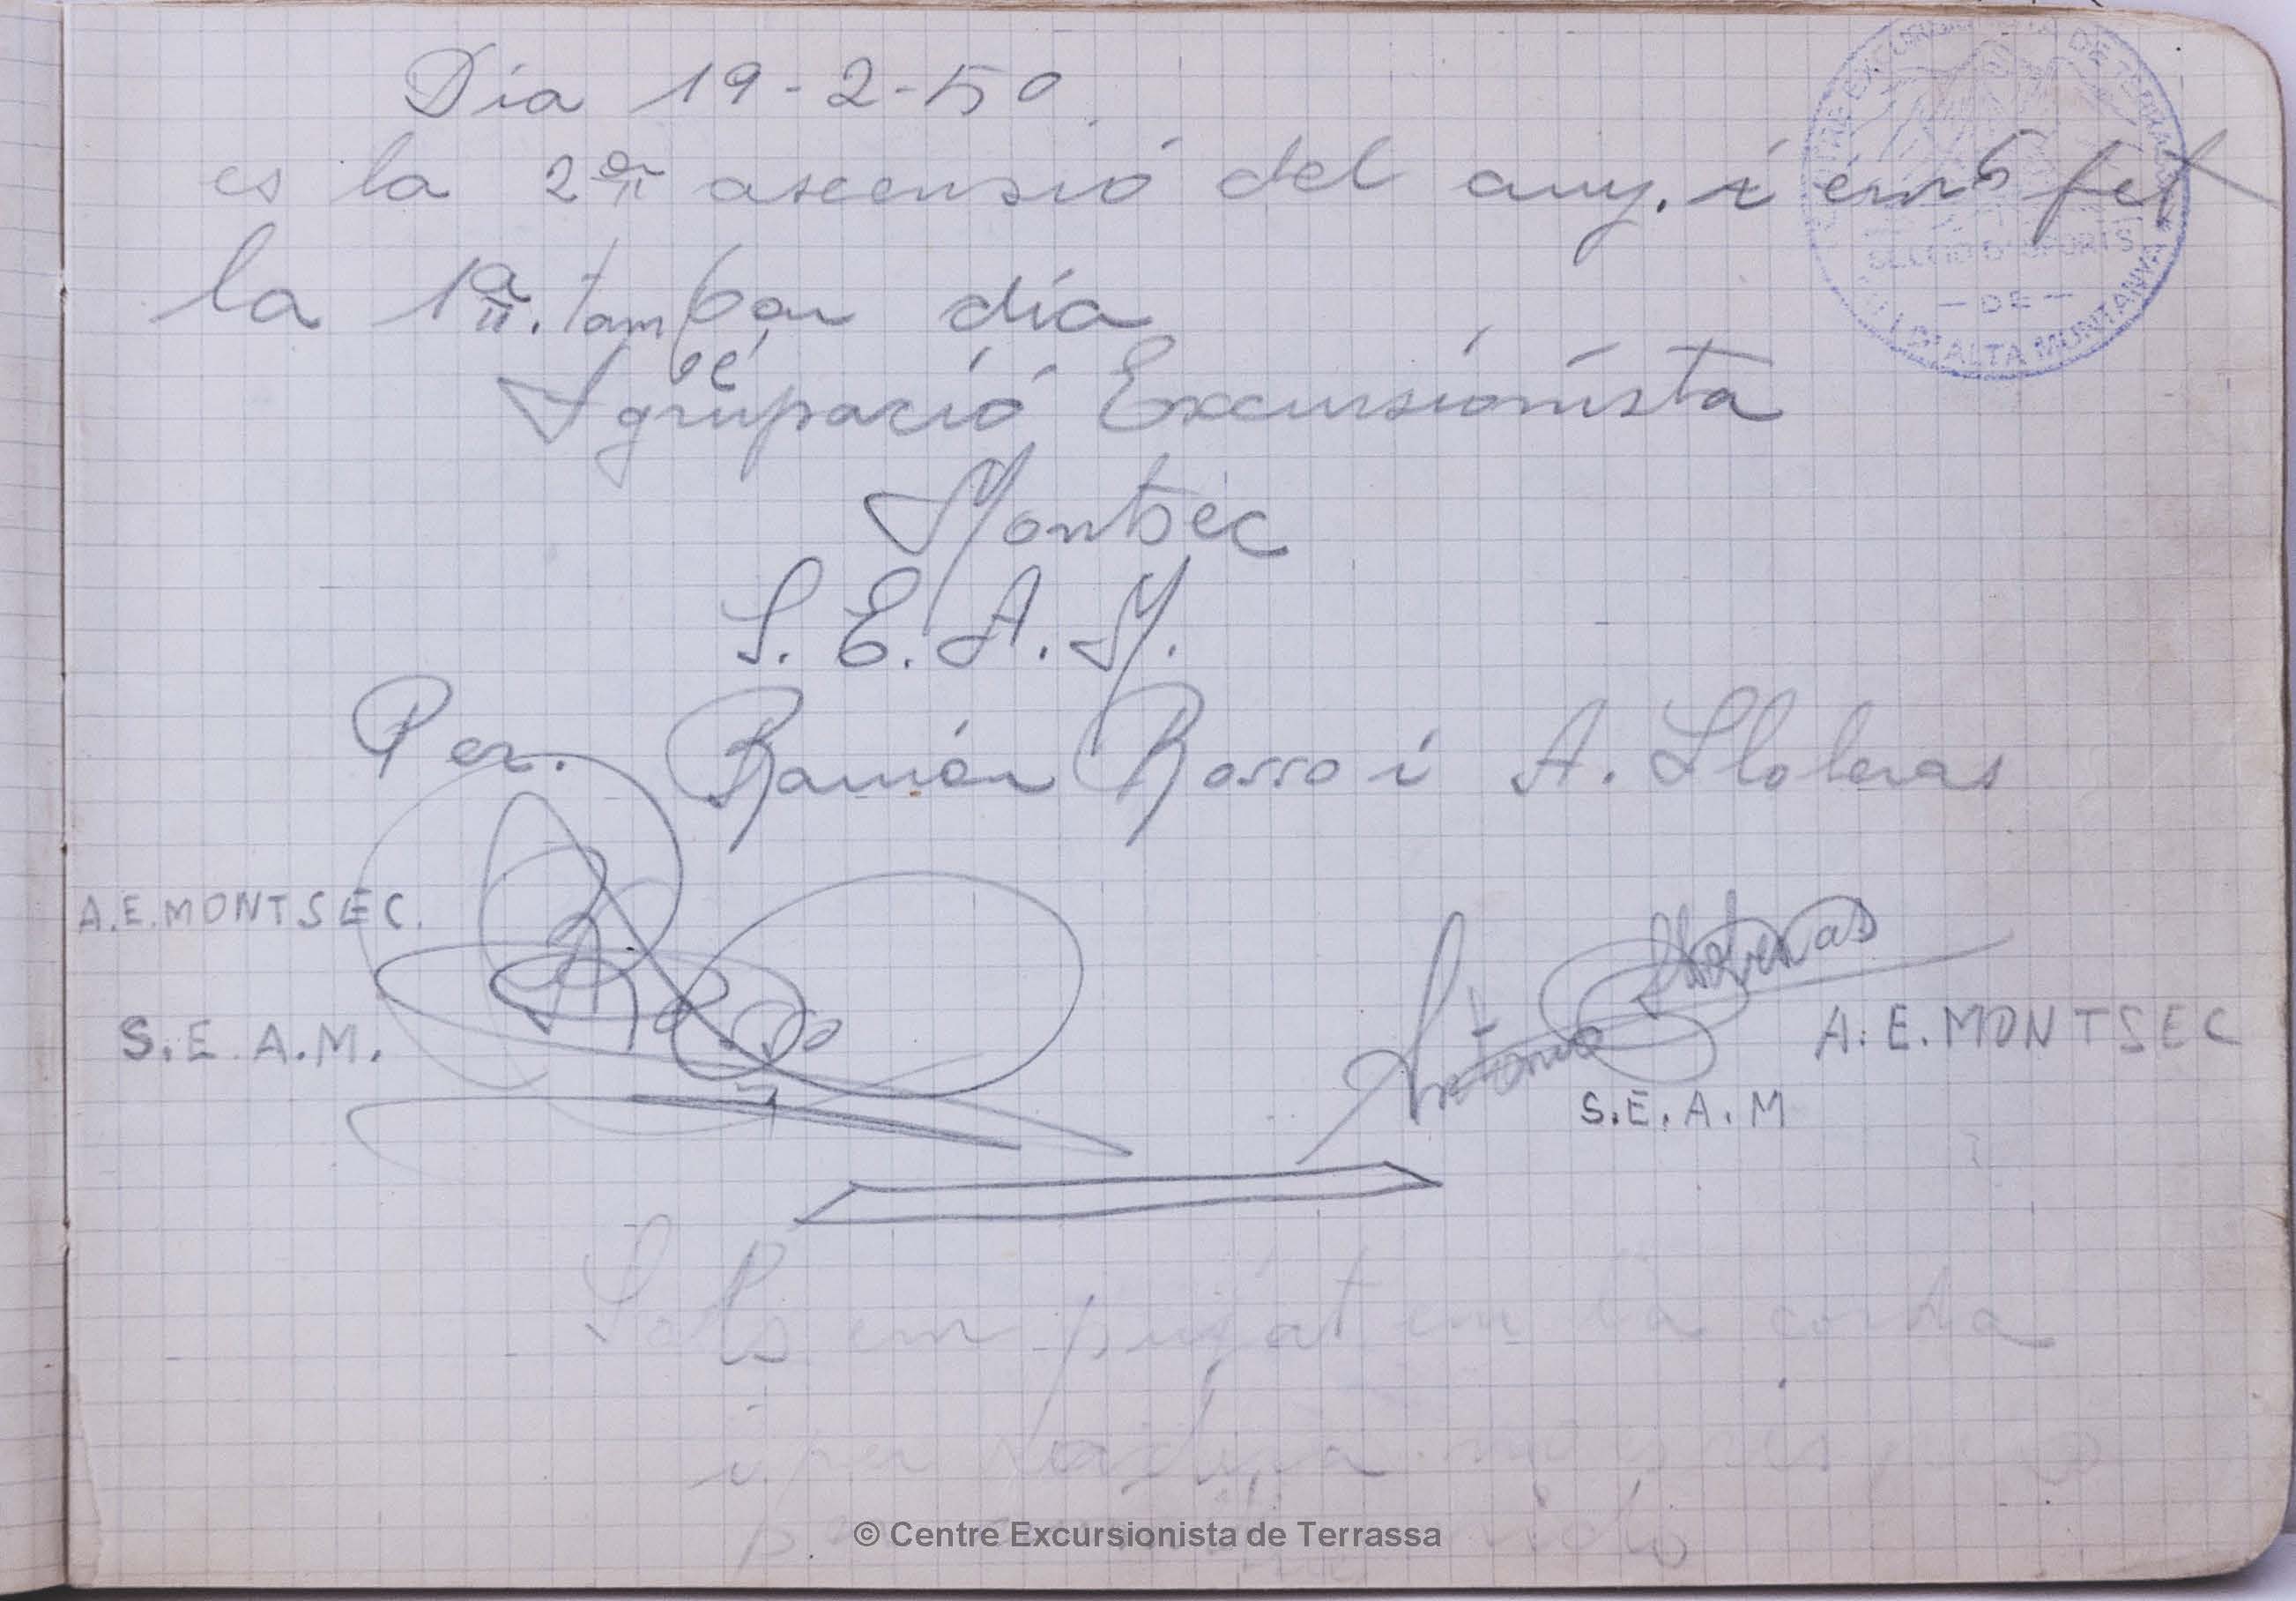 Dia 19-2-50.
es la 2ª ascensió del any. i em fet
la 1ª. tam bé
en día
Agrupació Excursionista
Montsec
S. E. A. M.
Per. Ramón Rosso i A. Lloberas
A.E. MONTSEC.
S.E.A.M.
Antonio Lloberas
A.E. MONTSEC
S.E.A.M
SECCIO D'ESPORTS
— DE —
Sols em pujat en la corda
i per
© Centre Excursionista de Terrassa